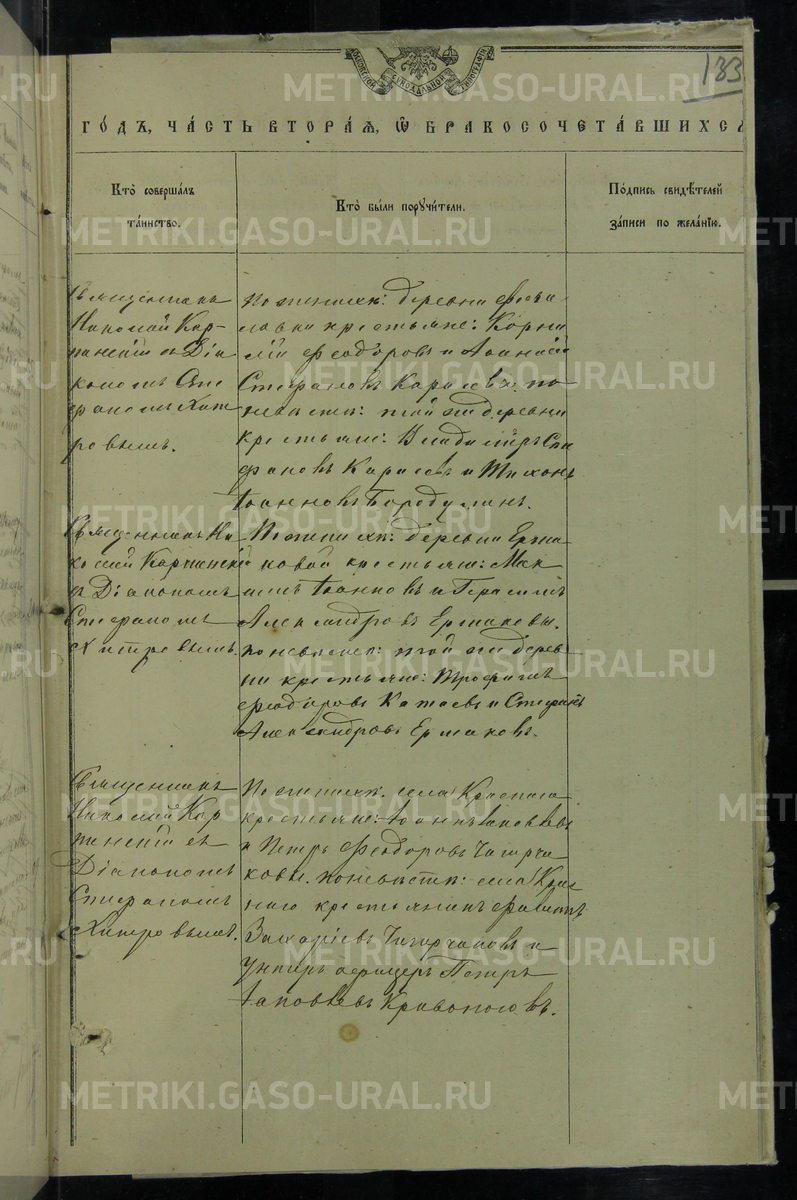 МОСКОВСКОЙ СИНОДАЛЬНОЙ ТИПОГРАФІИ
133
ГО́ДЪ, ЧА́СТЬ ВТОРА́Я, Ѡ БРАКОСОЧЕТА́ВШИХСЯ
Кто̀ соверша́лъ
та́инство.
Кто̀ бы́ли поручи́тели.
По́дпись свидѣ́телей
за́писи по жела́нїю.
Священникъ
Николай Кар-
пинскій съ Діа
кономъ Сте
фаномъ Хит
ровымъ.
По женихѣ: деревни
крестьяне: Корни
лій Феодоровъ и Аѳанасій
Стефановъ Карасевы. по
невѣстѣ: той же деревни
крестьяне: Владиміръ Сте
фановъ Карасевъ и Тихонъ
Іоанновъ Бородулинъ.
Священникъ Ни
колай Карпинскій
съ Діакономъ
Стефаномъ
Хитровымъ.
По женихѣ: деревни Ерма
ковой крестьяне: Мак
симъ Іоанновъ и Герасимъ
Александровъ Ермаковы.
по невѣстѣ: той же дерев
ни крестьяне: Трофимъ
Феодоровъ Катаевъ и Стефанъ
Александровъ Ермаковъ.
Священникъ
Николай Кар
пинскій съ
Діакономъ
Стефаномъ
Хитровымъ.
По женихѣ: села Краснаго
крестьяне: Іоаннъ Іаковлевъ
и Петръ Феодоровъ Чигирча
ковы. по невѣстѣ: села Крас
наго крестьянинъ Филиппъ
Захаріевъ Чигирчаковъ и
Унтеръ офицеръ Петръ
Іаковлевъ Кривоноговъ.
METRIKI.GASO-URAL.RU